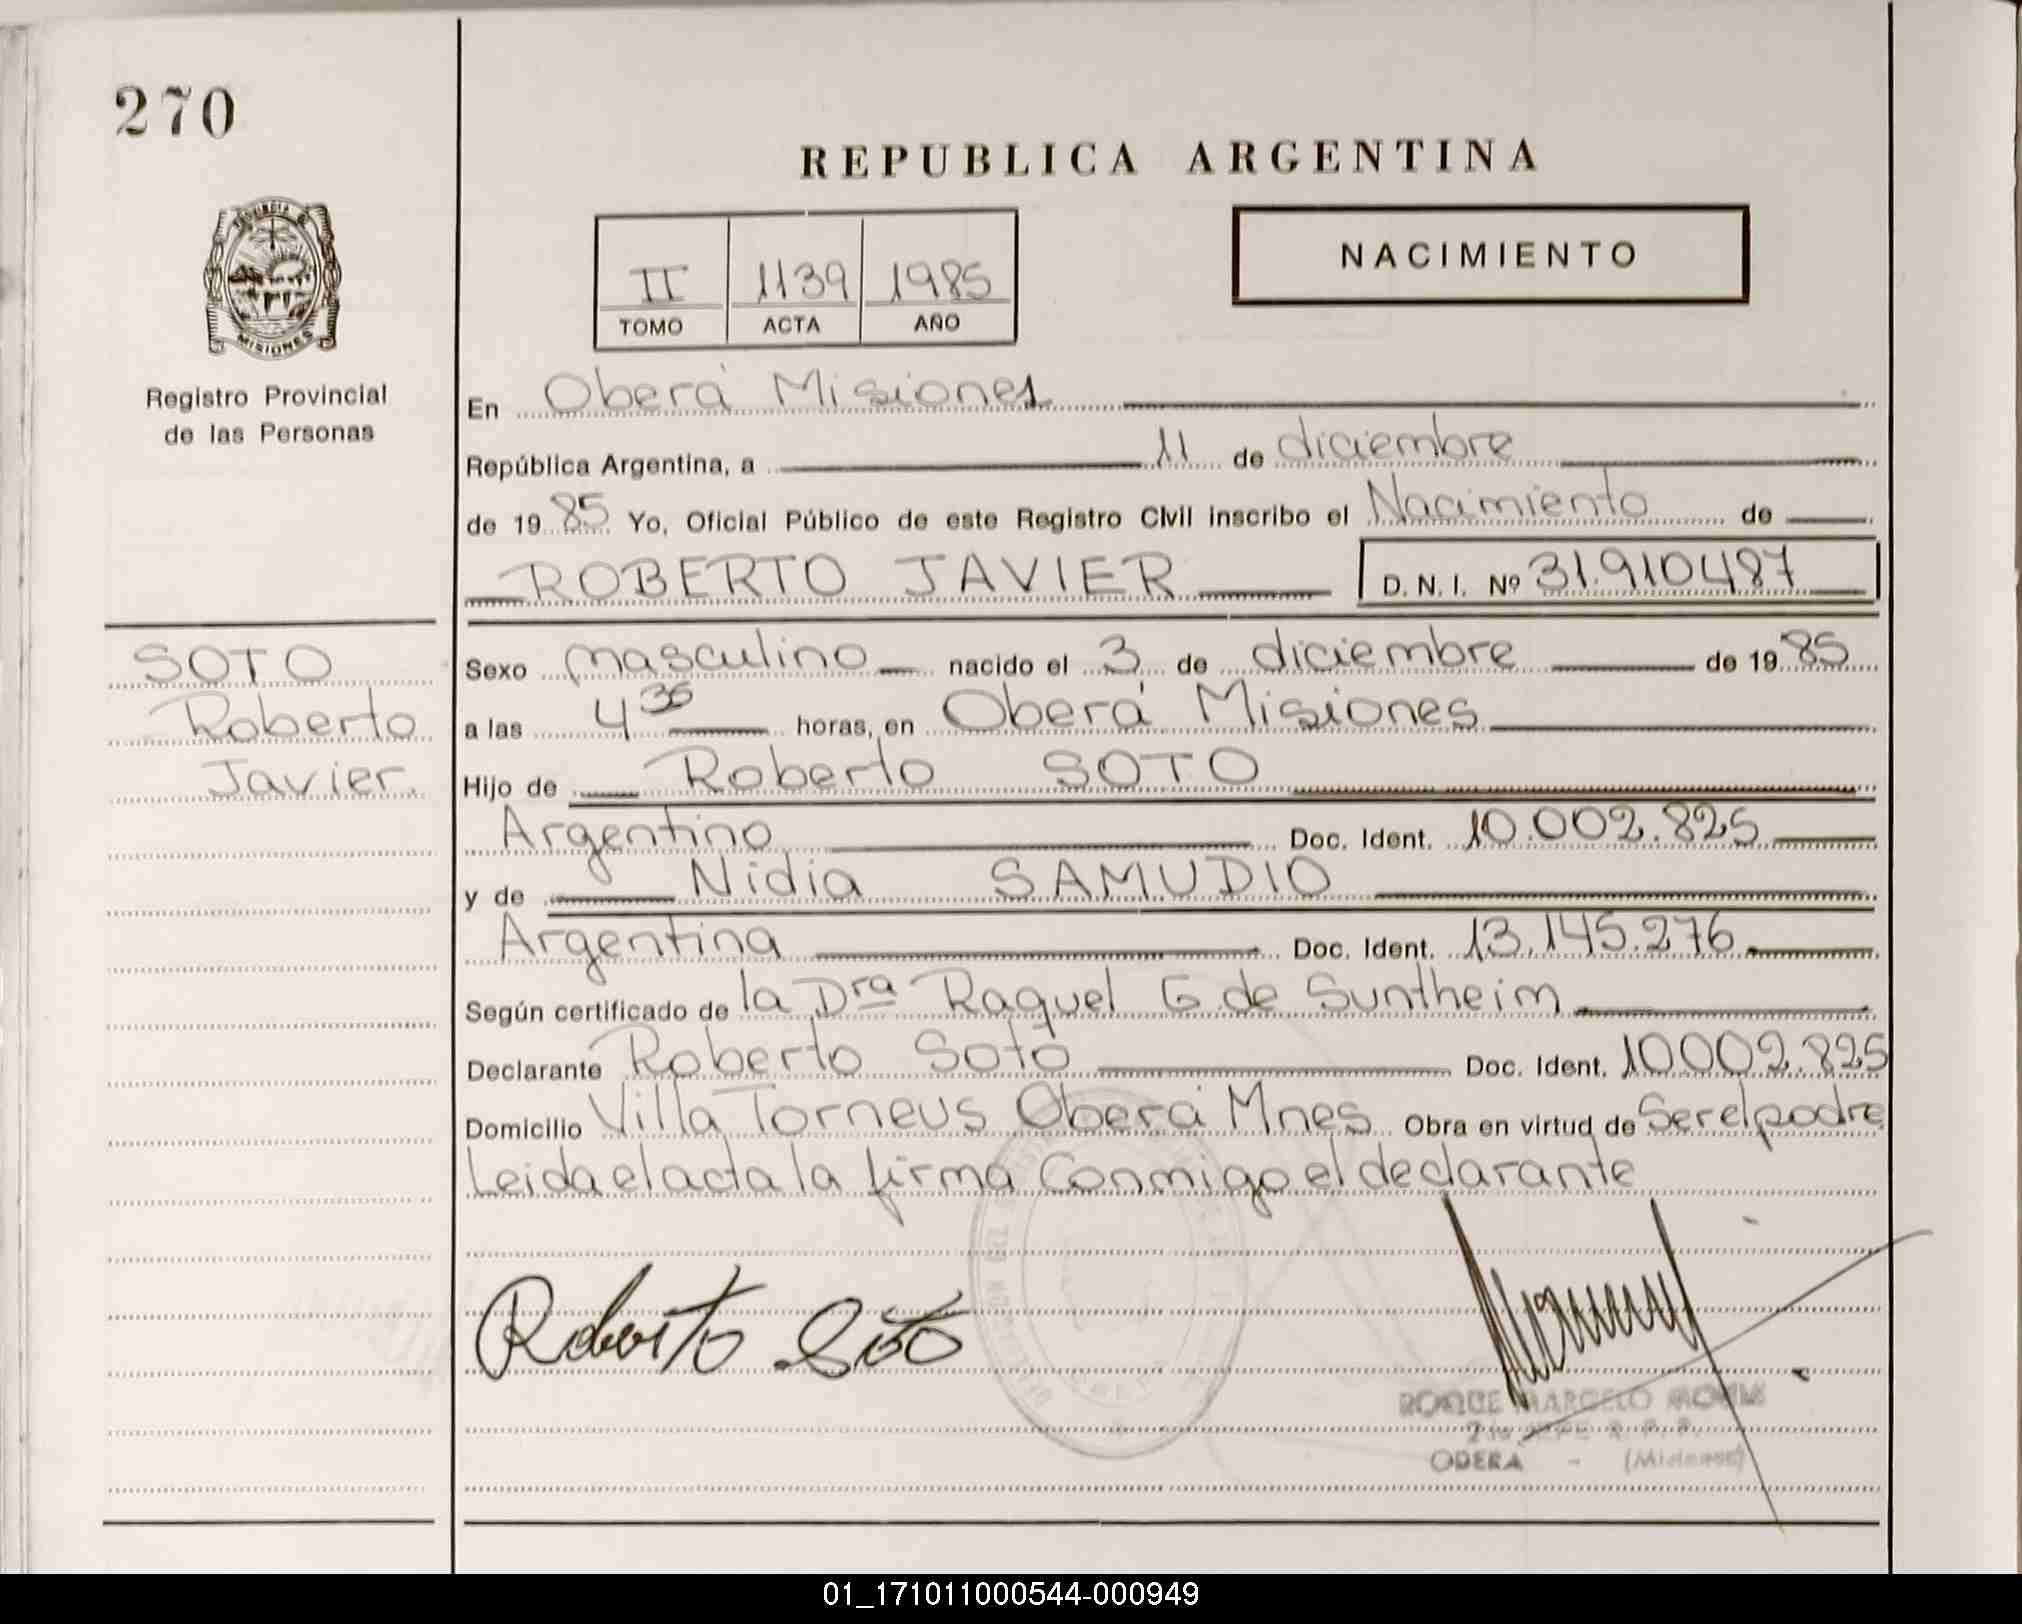 270
REPUBLICA ARGENTINA
NACIMIENTO
II 1139 1985
TOMO ACTA AÑO
PROVINCIA DE
MISIONES
Registro Provincial
de las Personas
SOTO
Roberto
Javier.
En Oberá Misiones
República Argentina, a 11 de diciembre
de 1985 Yo, Oficial Público de este Registro Civil inscribo el Nacimiento de
ROBERTO JAVIER D.N.I. Nº 31.910487
Sexo masculino nacido el 3 de diciembre de 1985
a las 4 35 horas, en Oberá Misiones
Hijo de Roberto SOTO
Argentino Doc. Ident. 10.002.825
y de Nidia SAMUDIO
Argentina Doc. Ident. 13.145.276
Según certificado de la Dra Raquel G de Suntheim
Declarante Roberto Soto Doc. Ident. 10002.825
Domicilio Villa Torneus Oberá Mnes Obra en virtud de Ser el padre
Leida el acta la firma Conmigo el declarante
Roberto Soto
ROQUE MARCELO
OBERA - (Misiones)
01_171011000544-000949